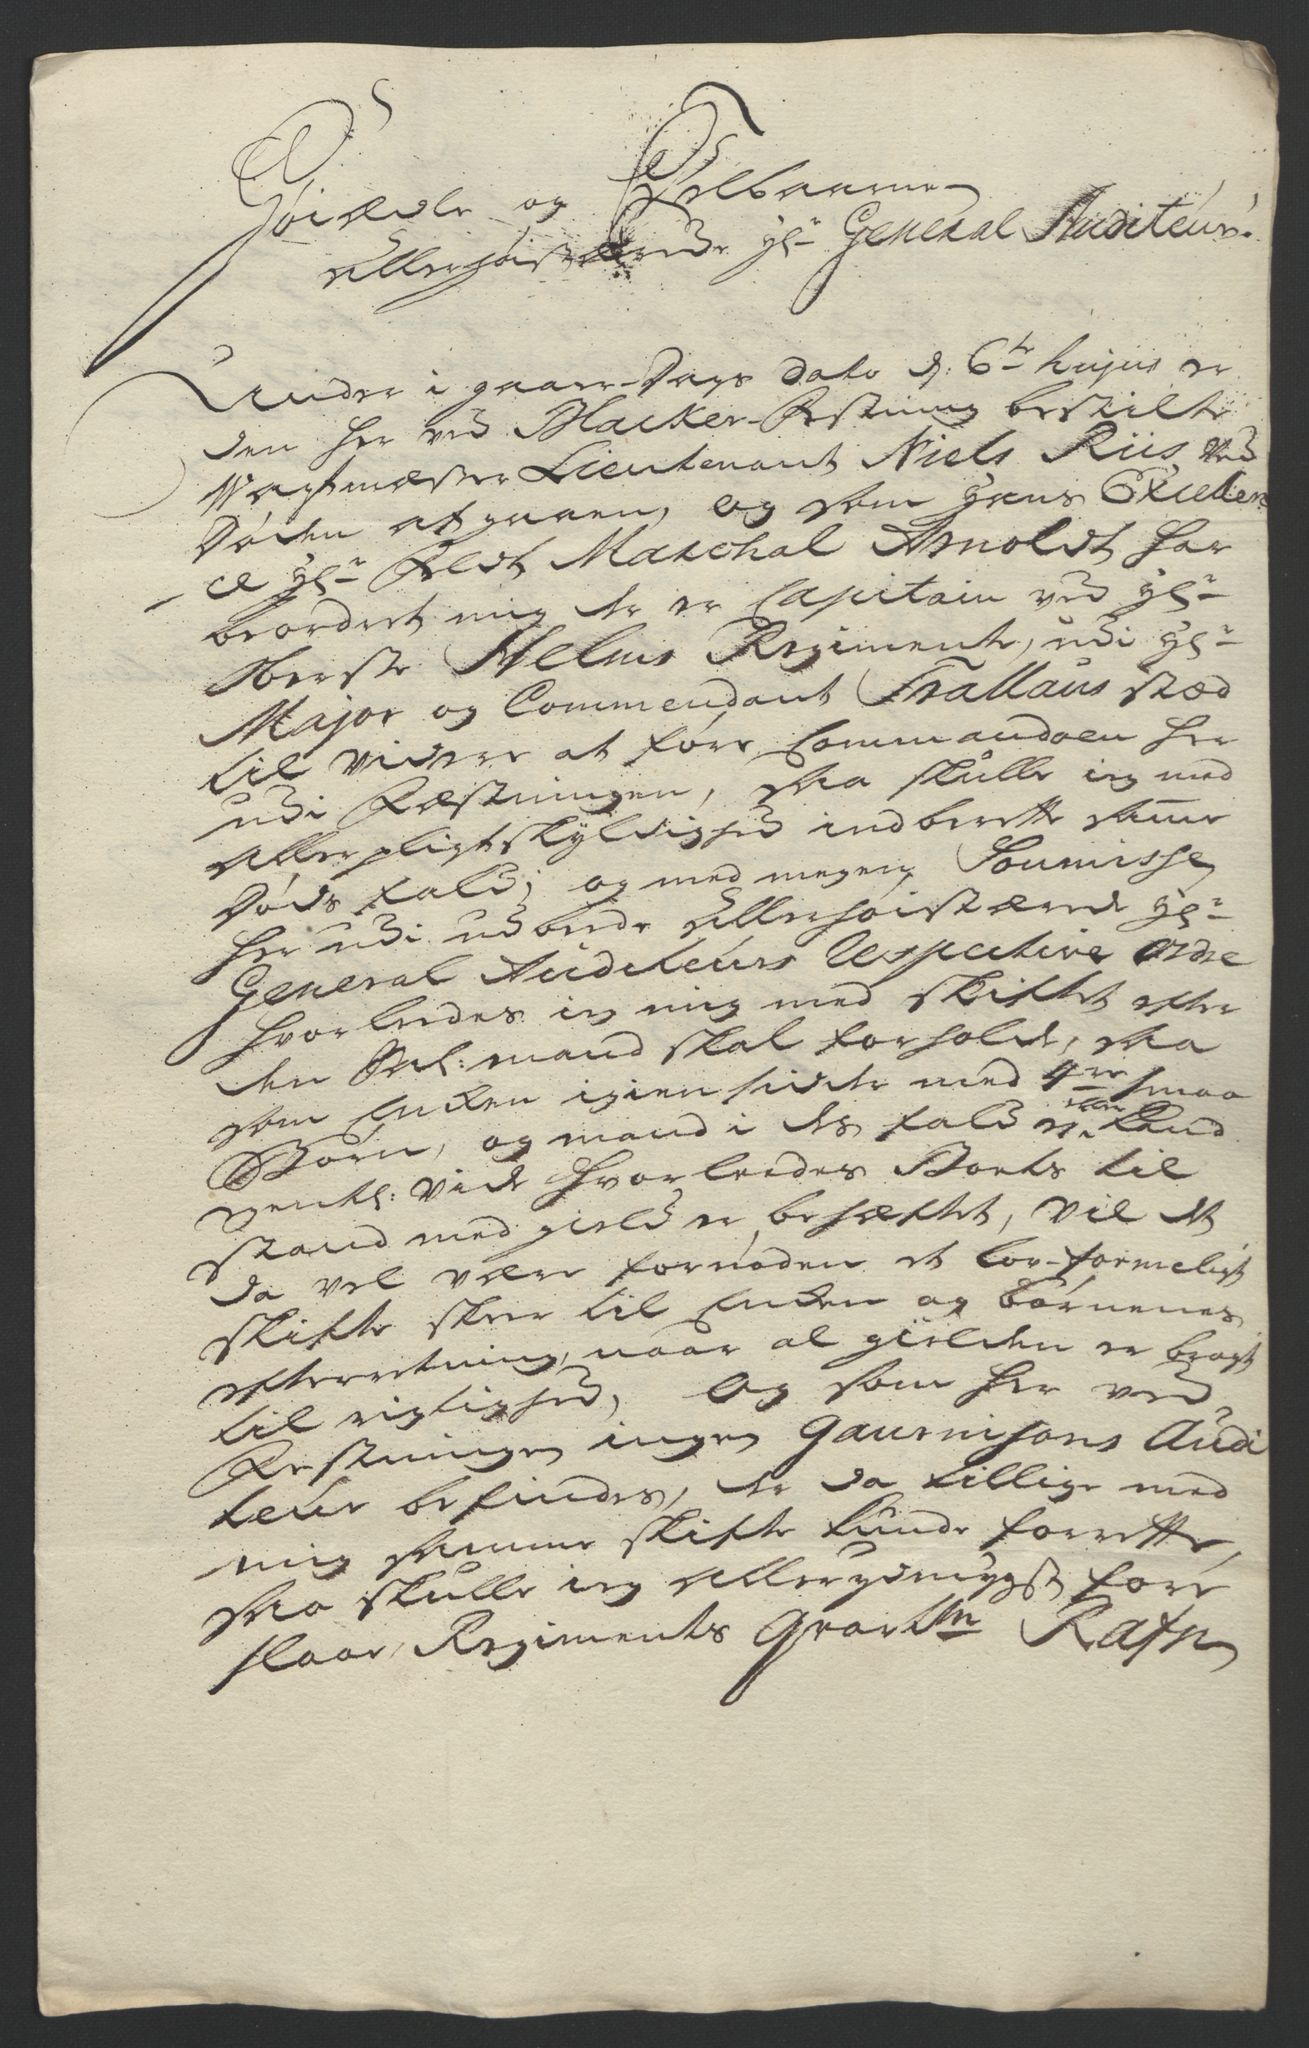 Høiædle og Velbaarne
Allerhøistærede Hr General Auditeur.
Under i gaar-Dags dato d: 6te hujus er
den her ved Blacker-Festning bestilte
Wagtmæster Lieutenant Niels Riis ved
Døden afgaaen, og som Hans Excellen
ce Hr Feldt Marchal Arnoldt har
beordret mig der er Capitain ved Hr
Oberste Helms Regimente, udi Hr
Major og Commendant Frallaus stæd
til vidre at føre Commandoen her
udi Fæstningen, saa skulle ieg med
allerpligtskyldighed indberette samme
Døds fald; og med megen Soumisse
her udi udbede Allerhøistærede Hr
General Auditeurs Respective Ordre
hvorledes ieg mig med skiftet efter
den Sal: mand skal forholde, saa
som Enken igien sidder med 4re smaa
Børn, og mand i des fald ei kand
egentl: vide hvorledes Boets til
stand med gield er behæftet, vil det
da vel være fornøden et lov-formeligt
skifte skeer til Enken og børnenes
efterretning, naar al gielden er bragt
til rigtighed, og som her ved
Festningen ingen Gaurnisons Audi
teur befindes, der da tillige med
mig samme skifte kunde forrette,
saa skulle ieg allerydmygst fore
slaae, Regiments Qvartmr Rafn